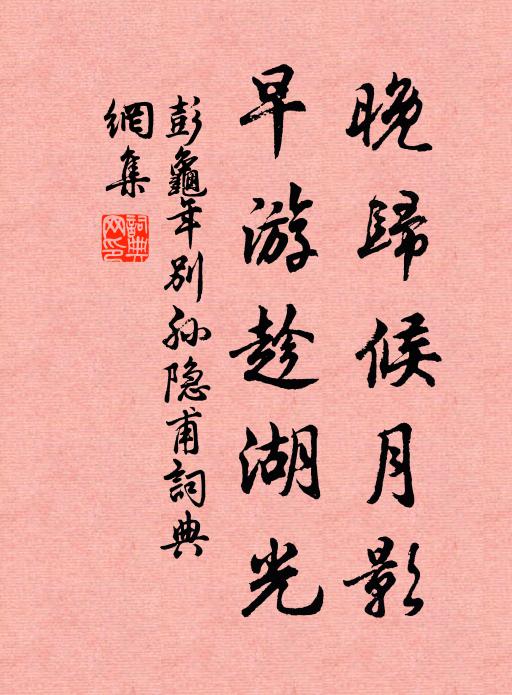 晚歸候月影
早游趁湖光
彭龜年別孙隐甫詞典
網集
詞典
网印